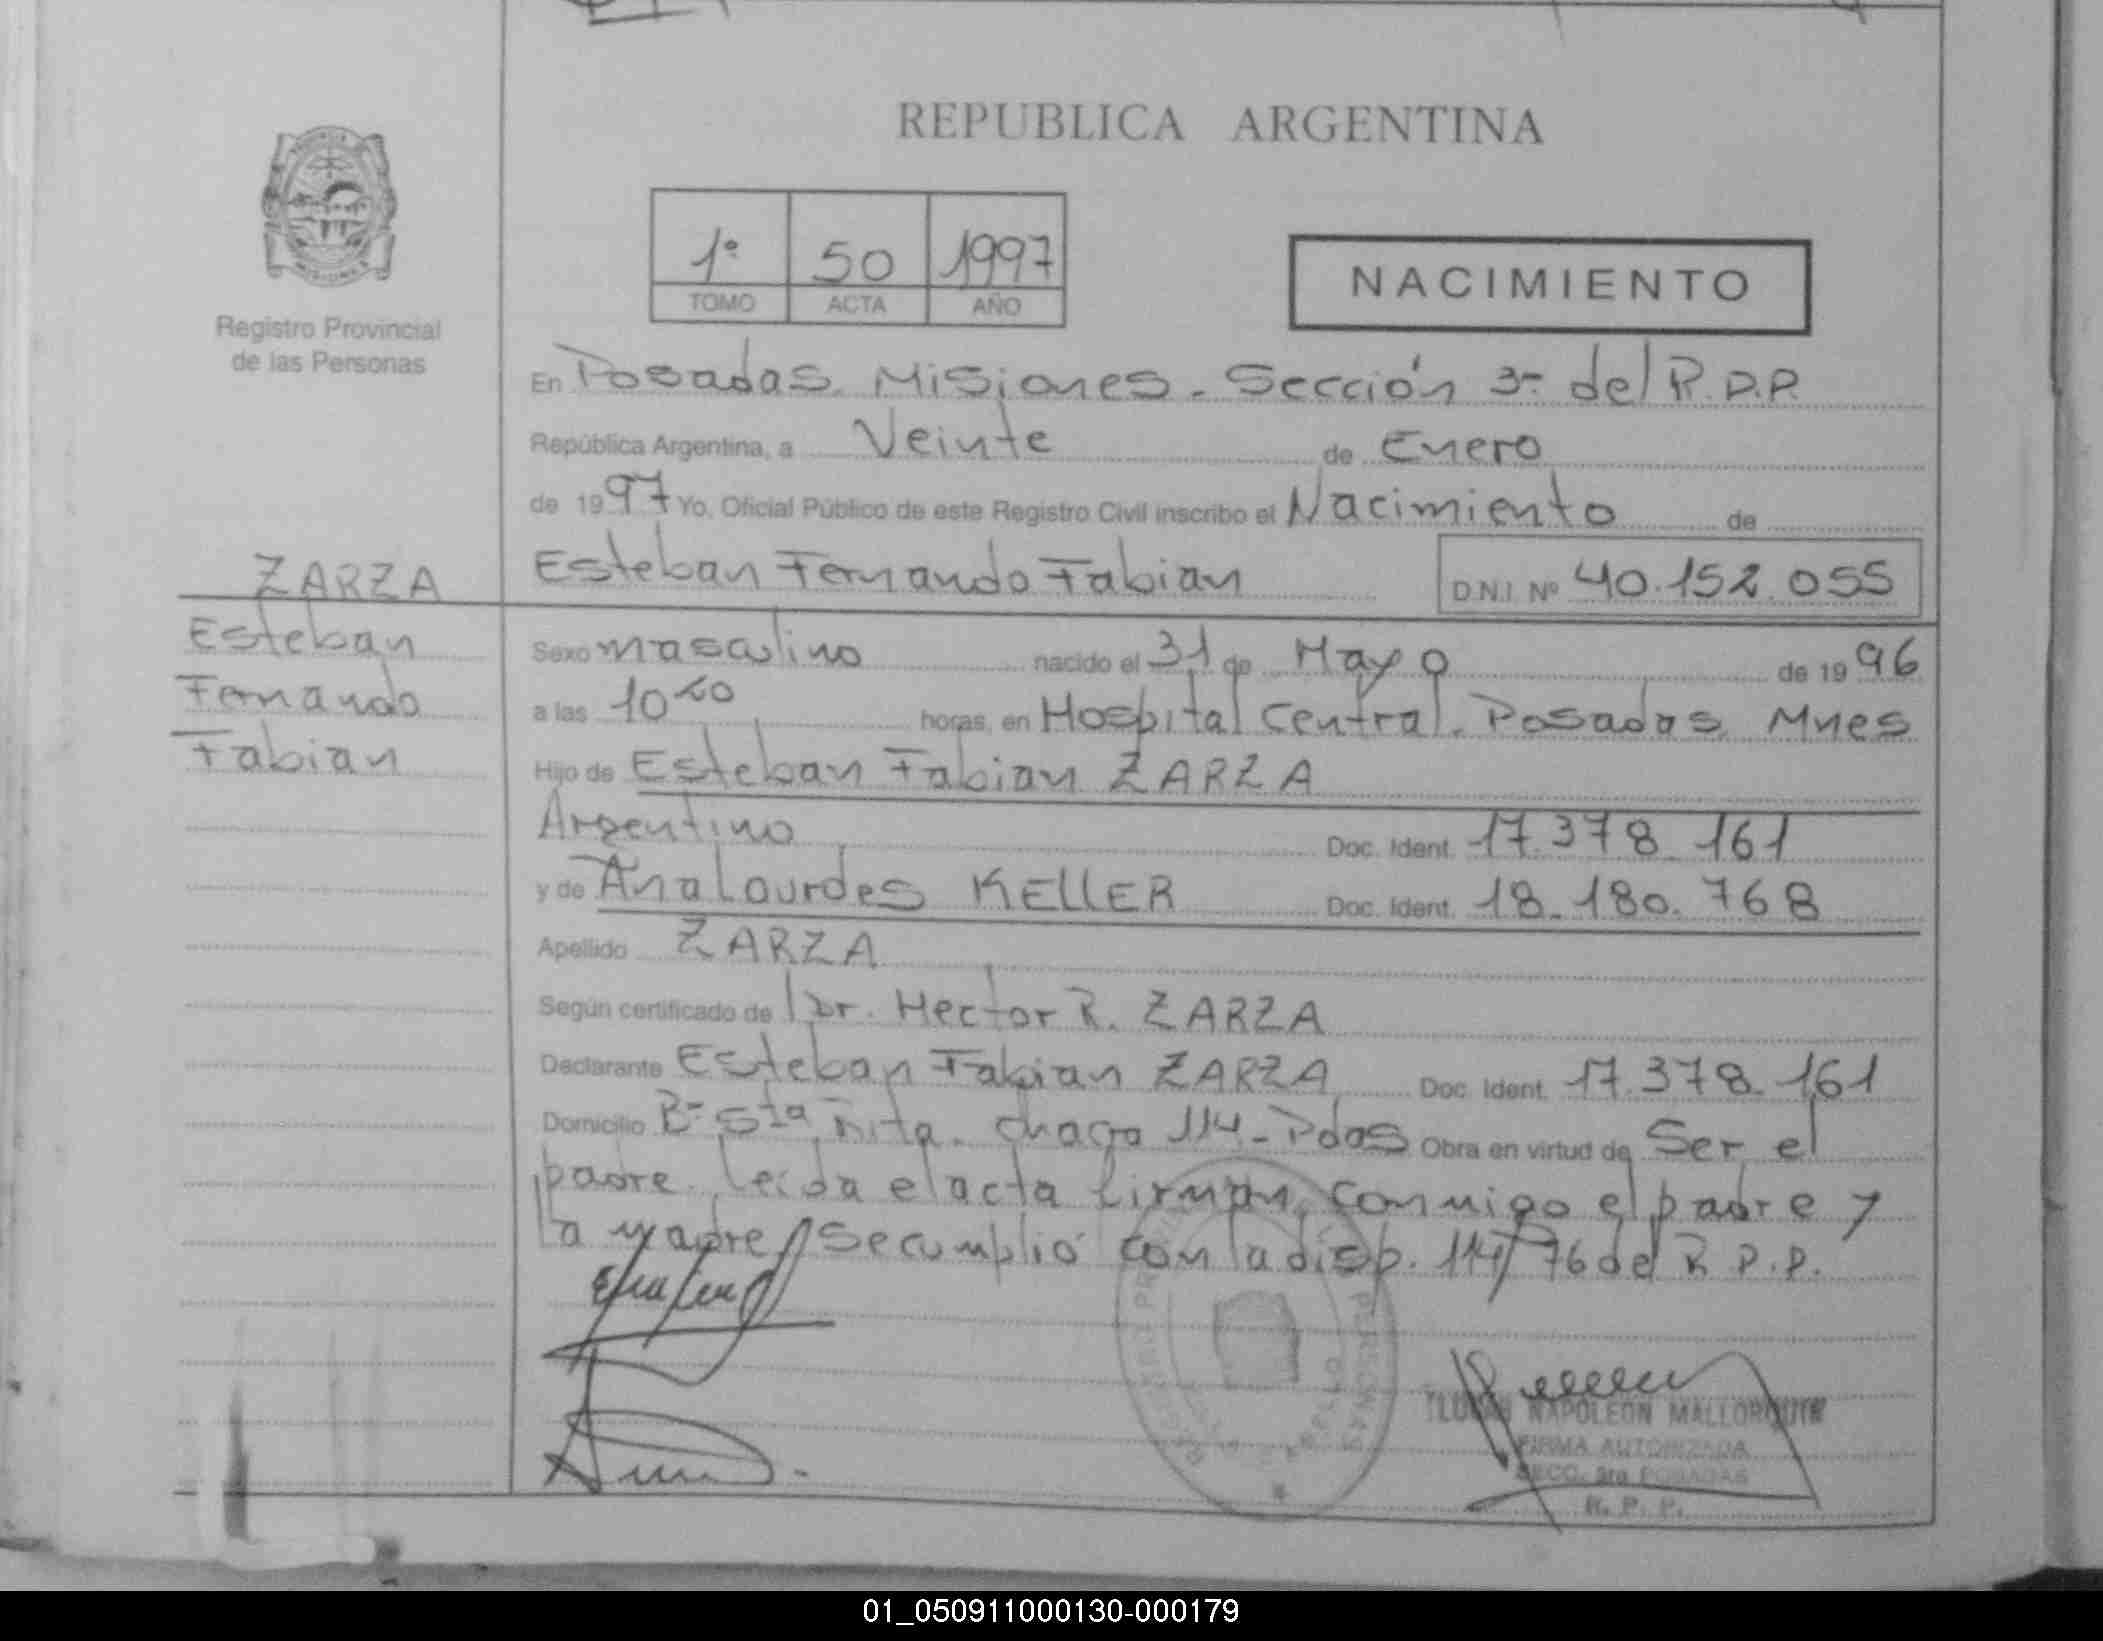 REPUBLICA ARGENTINA
1º 50 1997
TOMO ACTA AÑO
NACIMIENTO
Registro Provincial
de las Personas
En Posadas. Misiones. Sección 3ª del R.P.P.
República Argentina, a Veinte de Enero
de 1997 Yo, Oficial Público de este Registro Civil inscribo el Nacimiento de
Esteban Fernando Fabian D.N.I. Nº 40.152.055
ZARZA
Esteban
Fernando
Fabian
Sexo masculino nacido el 31 de Mayo de 1996
a las 10 horas, en Hospital Central. Posadas Mnes
Hijo de Esteban Fabian ZARZA
Argentino Doc. Ident. 17.378.161
y de Ana Lourdes KELLER Doc. Ident. 18.180.768
Apellido ZARZA
Según certificado de Dr. Hector R. ZARZA
Declarante Esteban Fabian ZARZA Doc. Ident. 17.378.161
Domicilio Bº Sta Rita. chacra 114 - Pdas Obra en virtud de Ser el
padre. Leída el acta firman conmigo el padre y
la madre. Se cumplió con la disp. 114/76 del R.P.P.
NAPOLEON MALLORQUIN
FIRMA AUTORIZADA
SECC. 3ra POSADAS
R. P. P.
01_050911000130-000179